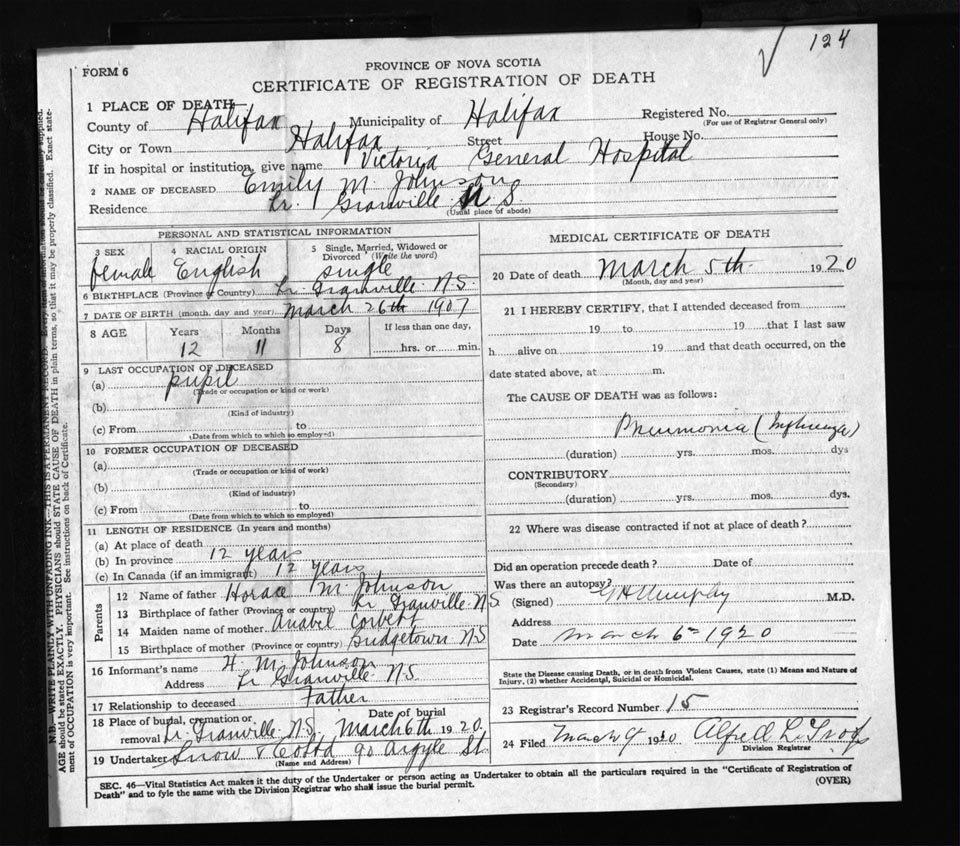 124
FORM 6
PROVINCE OF NOVA SCOTIA
CERTIFICATE OF REGISTRATION OF DEATH
1 PLACE OF DEATH
County of Halifax Municipality of Halifax Registered No.
(For use of Registrar General only)
City or Town Halifax Street House No.
If in hospital or institution, give name Victoria General Hospital
2 NAME OF DECEASED Emily M. Johnson
Residence Lr. Granville N S.
(Usual place of abode)
PERSONAL AND STATISTICAL INFORMATION
3 SEX 4 RACIAL ORIGIN 5 Single, Married, Widowed or Divorced (Write the word)
female English single
6 BIRTHPLACE (Province or Country) Lr. Granville N.S.
7 DATE OF BIRTH (month, day and year) March 26th 1907
8 AGE Years Months Days If less than one day,
12 11 8 hrs. or min.
9 LAST OCCUPATION OF DECEASED
(a) pupil
(Trade or occupation or kind or work)
(b)
(Kind of industry)
(c) From to
(Date from which to which so employed)
10 FORMER OCCUPATION OF DECEASED
(a)
(Trade or occupation or kind of work)
(b)
(Kind of industry)
(c) From to
(Date from which to which so employed)
11 LENGTH OF RESIDENCE (In years and months)
(a) At place of death
(b) In province 12 years
(c) In Canada (if an immigrant) 12 years
Parents
12 Name of father Horace M. Johnson
13 Birthplace of father (Province or country) Lr. Granville N.S.
14 Maiden name of mother Anabel Corbett
15 Birthplace of mother (Province or country) Bridgetown N.S
16 Informant's name H. M. Johnson
Address Lr Granville N.S.
17 Relationship to deceased Father
18 Place of burial, cremation or removal Lr. Granville N.S. Date of burial March 6th 1920
19 Undertaker Snow & Co Ltd 90 Argyle St.
(Name and Address)
MEDICAL CERTIFICATE OF DEATH
20 Date of death March 5th 1920
(Month, day and year)
21 I HEREBY CERTIFY, that I attended deceased from
19 to 19 that I last saw
h alive on 19 and that death occurred, on the
date stated above, at m.
The CAUSE OF DEATH was as follows:
Pneumonia (Influenza)
(duration) yrs. mos. dys
CONTRIBUTORY
(Secondary)
(duration) yrs. mos. dys.
22 Where was disease contracted if not at place of death?
Did an operation precede death? Date of
Was there an autopsy?
(Signed) G H Murphy M.D.
Address
Date March 6th 1920
State the Disease causing Death, or in death from Violent Causes, state (1) Means and Nature of
Injury, (2) whether Accidental, Suicidal or Homicidal.
23 Registrar's Record Number 15
24 Filed March 9 1920 Alfred
Division Registrar
SEC. 46—Vital Statistics Act makes it the duty of the Undertaker or person acting as Undertaker to obtain all the particulars required in the "Certificate of Registration of
Death" and to fyle the same with the Division Registrar who shall issue the burial permit.
(OVER)
N.B.—WRITE PLAINLY WITH UNFADING INK—THIS IS A PERMANENT RECORD.
AGE should be stated EXACTLY. PHYSICIANS should STATE CAUSE OF DEATH in plain terms, so that it may be properly classified. Exact state-
ment of OCCUPATION is very important. See instructions on back of Certificate.